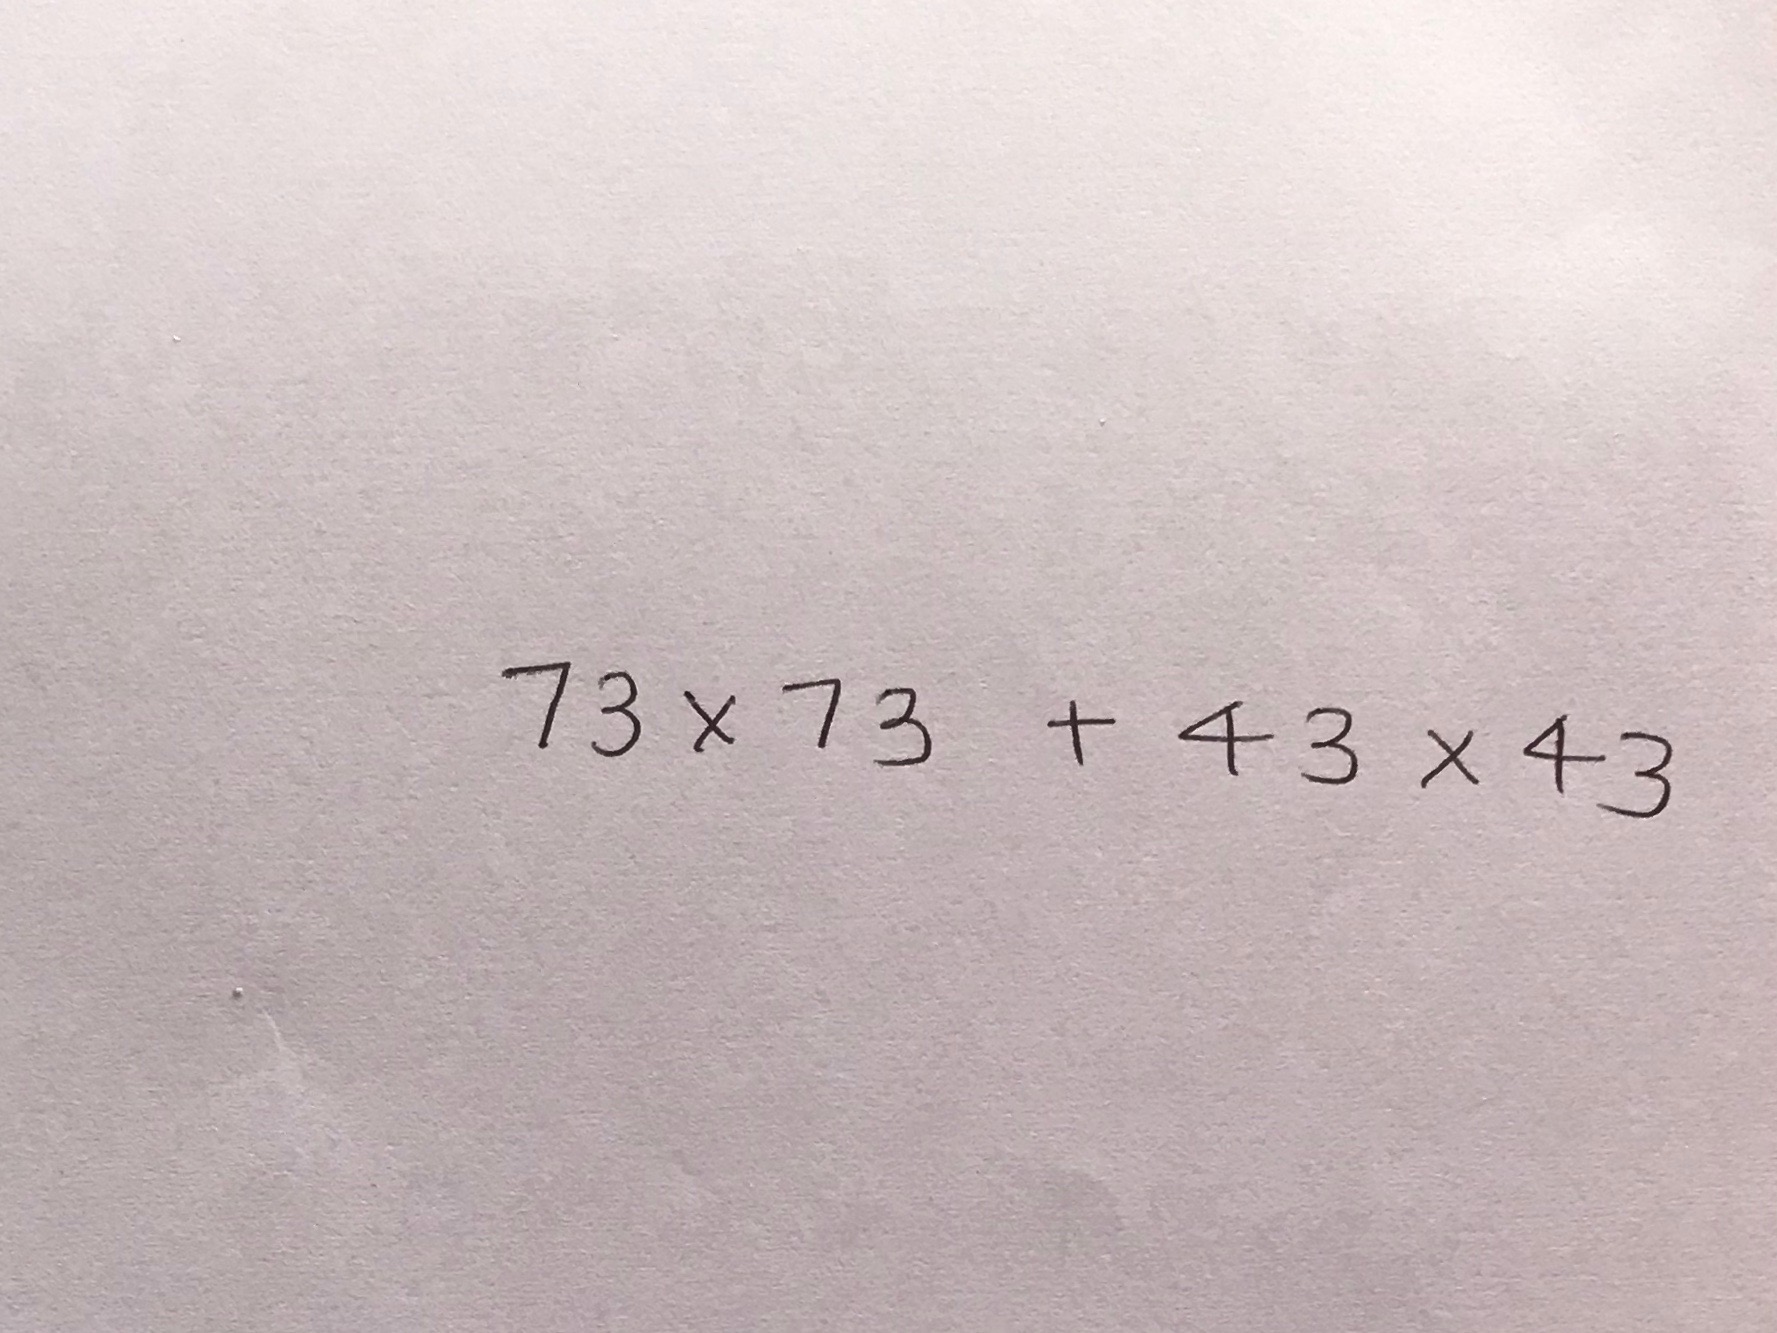 73 x 73 + 43 x 43